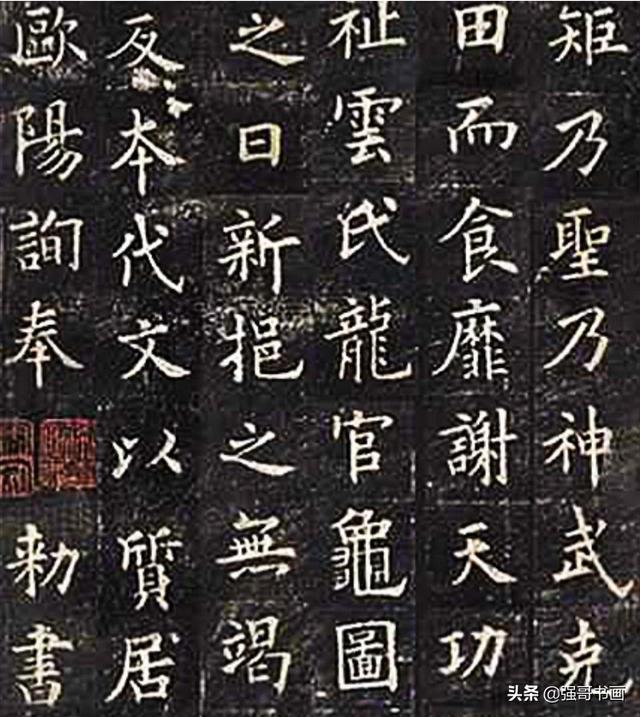 矩乃聖乃神武克
田而食靡謝天功
祉雲氏龍官龜圖
之日新挹之無竭
反本代文以質居
歐陽詢奉勅書
头条@强哥书画